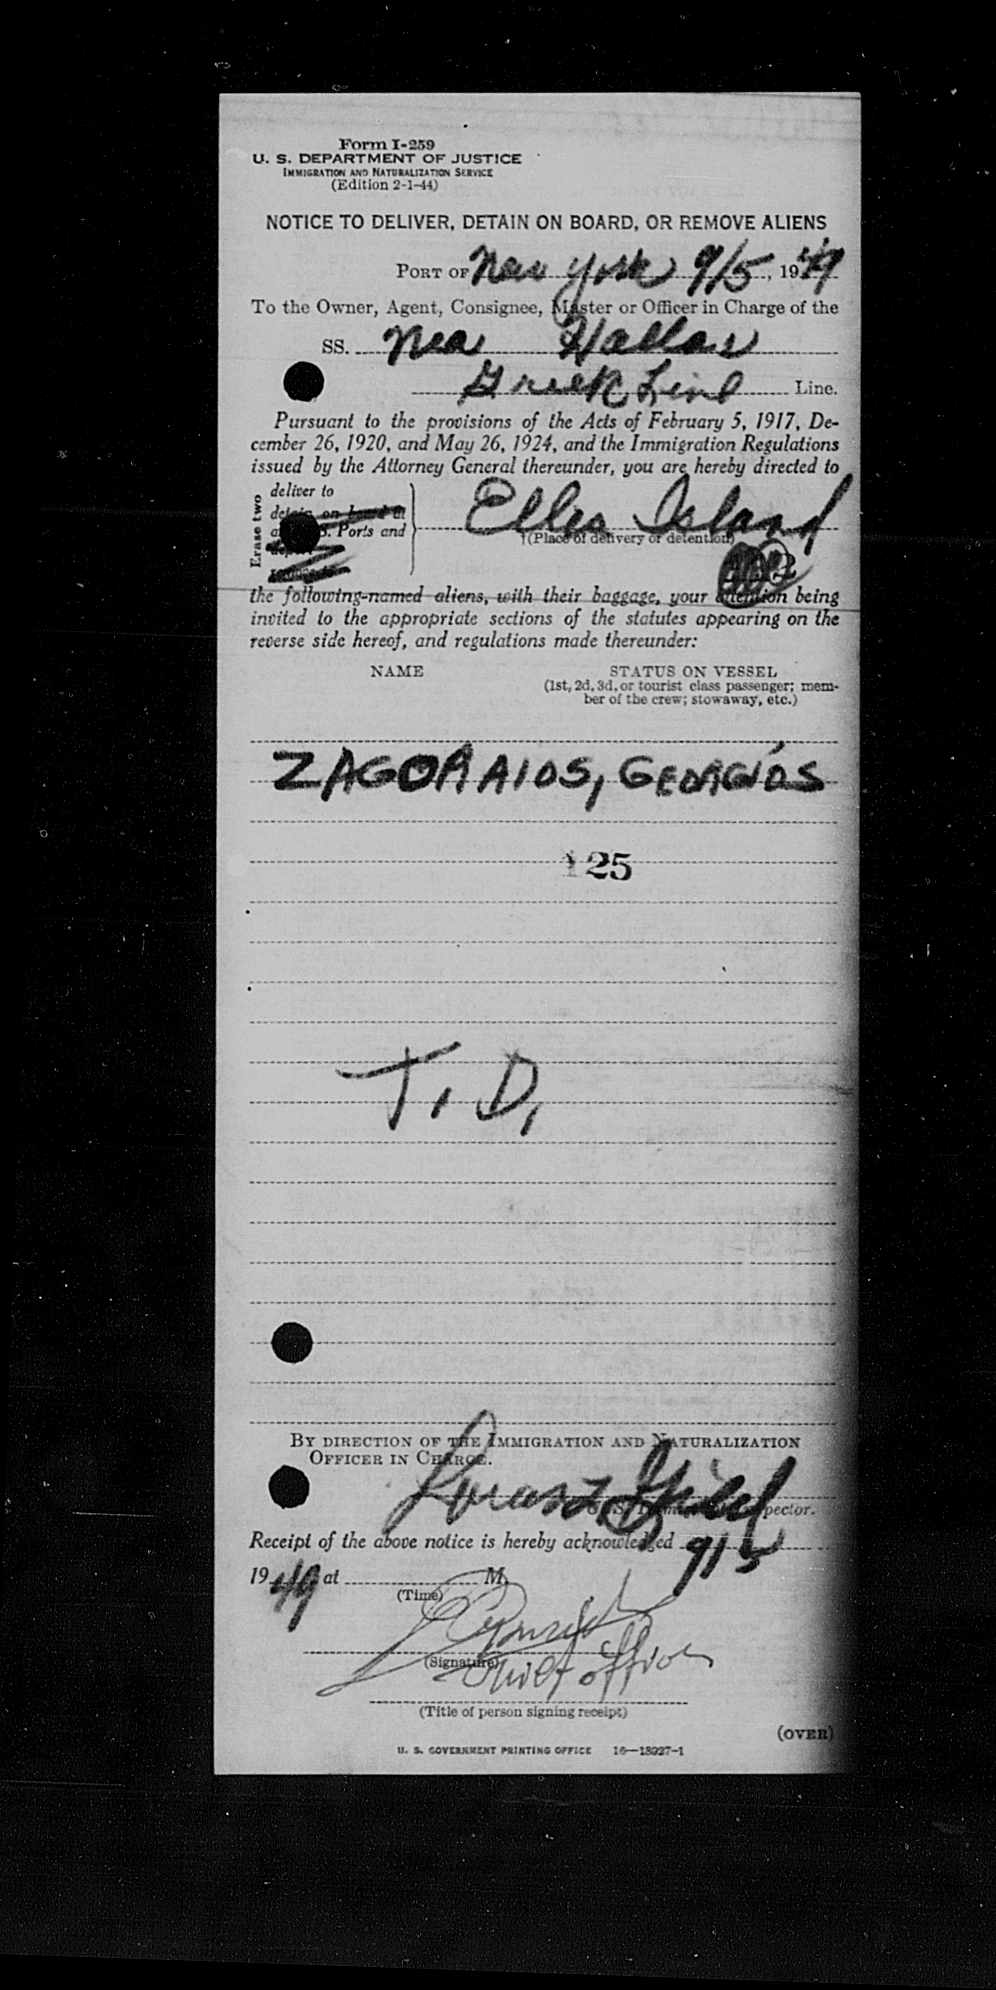 Form I-259
U. S. DEPARTMENT OF JUSTICE
IMMIGRATION AND NATURALIZATION SERVICE
(Edition 2-1-44)
NOTICE TO DELIVER, DETAIN ON BOARD, OR REMOVE ALIENS
PORT OF New York 9/5, 1949
To the Owner, Agent, Consignee, Master or Officer in Charge of the
SS. Nea Hallas
Greek Line Line.
Pursuant to the provisions of the Acts of February 5, 1917, De-
cember 26, 1920, and May 26, 1924, and the Immigration Regulations
issued by the Attorney General thereunder, you are hereby directed to
Erase two
deliver to
detain on board at
Ports and
Elles Island
(Place of delivery or detention)
the following-named aliens, with their baggage, your attention being
invited to the appropriate sections of the statutes appearing on the
reverse side hereof, and regulations made thereunder:
NAME STATUS ON VESSEL
(1st, 2d, 3d, or tourist class passenger; mem-
ber of the crew; stowaway, etc.)
ZAGORAIOS, GEORGIOS
125
T. D.
BY DIRECTION OF THE IMMIGRATION AND NATURALIZATION
OFFICER IN CHARGE.
Inspector.
Receipt of the above notice is hereby acknowledged 9/5
1949 at M.
(Time)
(Signature)
Chief officer
(Title of person signing receipt)
(OVER)
U. S. GOVERNMENT PRINTING OFFICE 16—18927-1